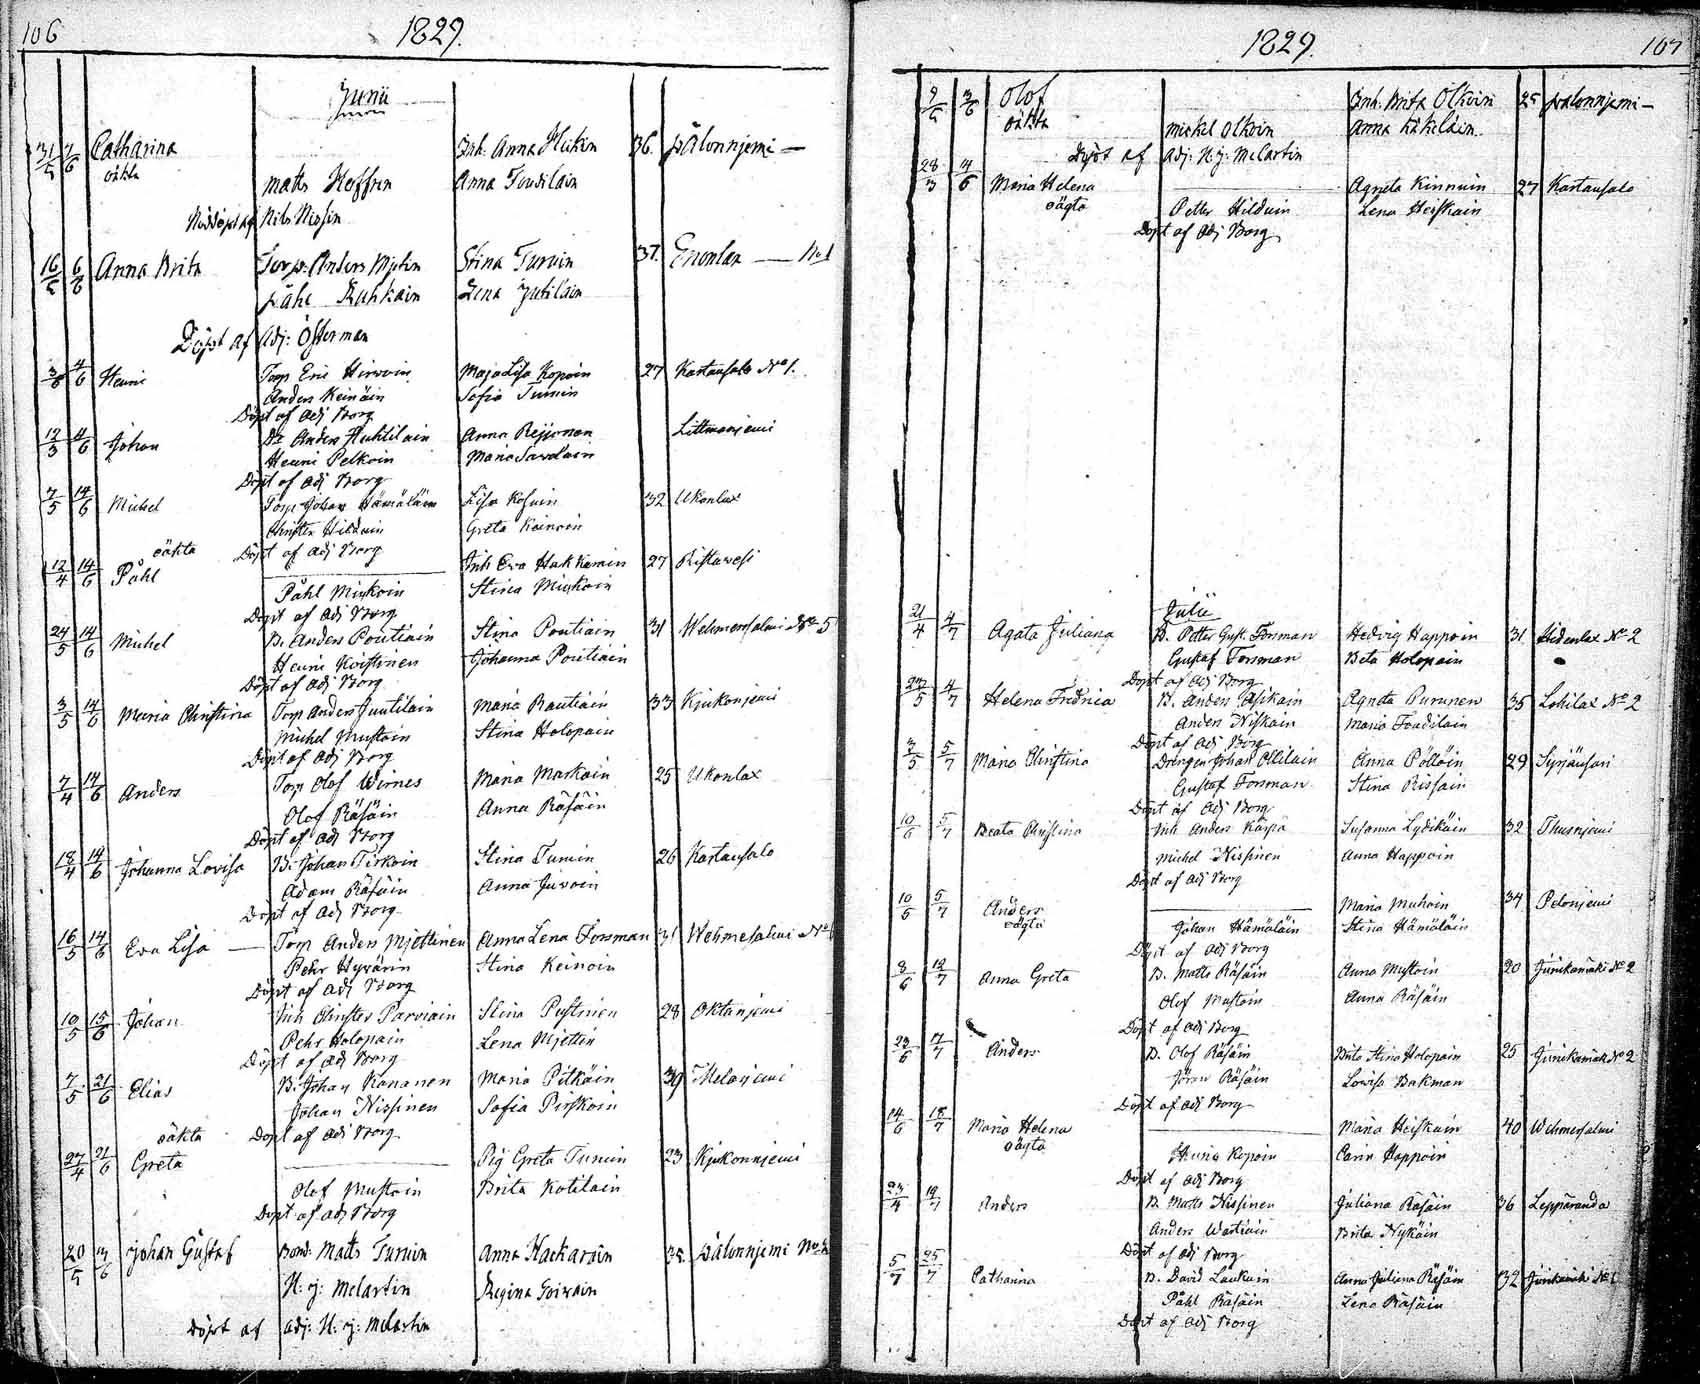 106
1829.
Junii
31/5 7/6 Catharina Inh. Anna Heikin 36. Pålonnjemi —
oäkta Matts Hoffrin Anna Toudilain
Nöddöpt af Nils Nissin
16/5 6/6 Anna Brita Torp. Anders Mytin Stina Turuin 37. Enonlax — No 1
Påhl Ruhkain Lena Jutilain
Döpt af Adj: Österman
3/6 4/6 Henric Torp Eric Hirwoin Maja Lisa Kopoin 27 Kartausalo No 1.
Anders Keinäin Sofia Turuin
Döpt af Adj Borg
12/3 4/6 Johan Anders Huhtilain Anna Reijonen Littmanjemi
Henric Pelkoin Maria Savolain
Döpt af Adj Borg
7/5 14/6 Michel Torp Johan Hämäläin Lisa Kosuin 32 Ukonlax
Christer Hilduin Greta Koinoin
oäkta Döpt af Adj Borg
12/4 14/6 Påhl Inh Eva Hakkarain 27 Ristawesi
Påhl Miskoin Stina Miskoin
Döpt af Adj Borg
24/5 14/6 Michel B. Anders Poutiain Stina Poutiain 31 Wehmersalmi No 5
Henric Koistinen Johanna Poutiain
Döpt af Adj Borg
3/5 14/6 Maria Christina Torp Anders Juutilain Maria Rautiain 33 Kjukonjemi
Michel Mustoin Stina Holopain
Döpt af Adj Borg
7/4 14/6 Anders Torp Olof Wirnes Maria Markain 25 Ukonlax
Olof Räsäin Anna Räsäin
Döpt af Adj Borg
18/4 14/6 Johanna Lovisa B. Johan Tirkoin Stina Turuin 26 Kartausalo
Adam Räsäin Anna Juvoin
Döpt af Adj Borg
16/5 14/6 Eva Lisa — Torp Anders Mjettinen Anna Lena Forsman 31 Wehmesalmi No
Pehr Hyvärin Stina Keinoin
Döpt af Adj Borg
10/5 15/6 Johan Inh Christer Parviain Stina Pustinen 28 Oktanjemi
Pehr Holopain Lena Mjettin
Döpt af Adj Borg
7/5 21/6 Elias B. Johan Kananen Maria Pitkäin 39 Melanjemi
Johan Nissinen Sofia Pirskoin
oäkta Döpt af Adj Borg
27/4 21/6 Greta Pig Greta Turuin 23 Kjukonnjemi
Olof Mustoin Brita Kotilain
Döpt af Adj Borg
20/5 13/6 Johan Gustaf Bond. Matts Turuin Anna Hackarain 35. Pålonnjemi No 2
H: J: Melartin Regina Toivain
Döpt af Adj: H: J: Melartin
1829.
107
9/5 3/6 Olof Inh. Brita Olkoin 25 Pålonnjemi —
oäkta Michel Olkoin Anna Käkeläin.
Döpt af Adj: H: J: Melartin
28/3 4/6 Maria Helena Agneta Kinnuin 27 Kartausalo
oägta Petter Hilduin Lena Heiskain
Döpt af Adj Borg
Julii
21/4 4/7 Agata Juliana B. Petter Gust. Forsman Hedvig Happoin 31 Hidenlax No 2
Gustaf Forsman Beta Holopain
Döpt af Adj Borg
27/5 4/7 Helena Fredrica B. Anders Asikain Agneta Purunen 35 Lohilax No 2
Anders Niskain Maria Toudilain
Döpt af Adj Borg
3/5 5/7 Maria Christina Drängen Johan Ollilain Anna Pölläin 29 Syrjänsari
Gustaf Forsman Stina Rissain
Döpt af Adj Borg
10/6 5/7 Beata Christina Inh Anders Karpä Susanna Lydikäin 32 Thusnjemi
Michel Nissinen Anna Happoin
Döpt af Adj Borg
10/5 5/7 Anders Maria Muhoin 34 Pelonjemi
oägta Johan Hämäläin Stina Hämäläin
Döpt af Adj Borg
8/6 12/7 Anna Greta B. Matts Räsäin Anna Mustoin 20 Jurikamäki No 2
Olof Mustoin Anna Räsäin
Döpt af Adj Borg
23/6 17/7 Anders B. Olof Räsäin Brita Stina Holopain 25 Jurikamäki No 2
Jöran Räsäin Lovisa Backman
Döpt af Adj Borg
14/6 18/7 Maria Helena Maria Heiskain 40 Wehmersalmi
oägta Kopoin Carin Happoin
Döpt af Adj Borg
23/4 19/7 Anders B. Matts Nissinen Juliana Räsäin 36 Lepparanda
Anders Wartiain Brita Nykäin
Döpt af Adj Borg
5/7 25/7 Catharina B. David Laukain Anna Juliana Räsäin 32 Jurikamäki No 1
Påhl Räsäin Lena Räsäin
Döpt af Adj Borg